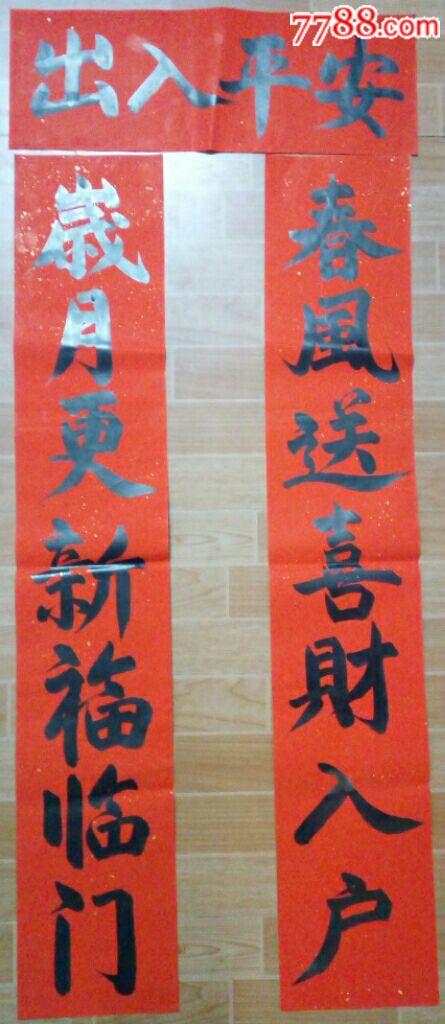 7788.com
出入平安
春風送喜財入户
歲月更新福临门